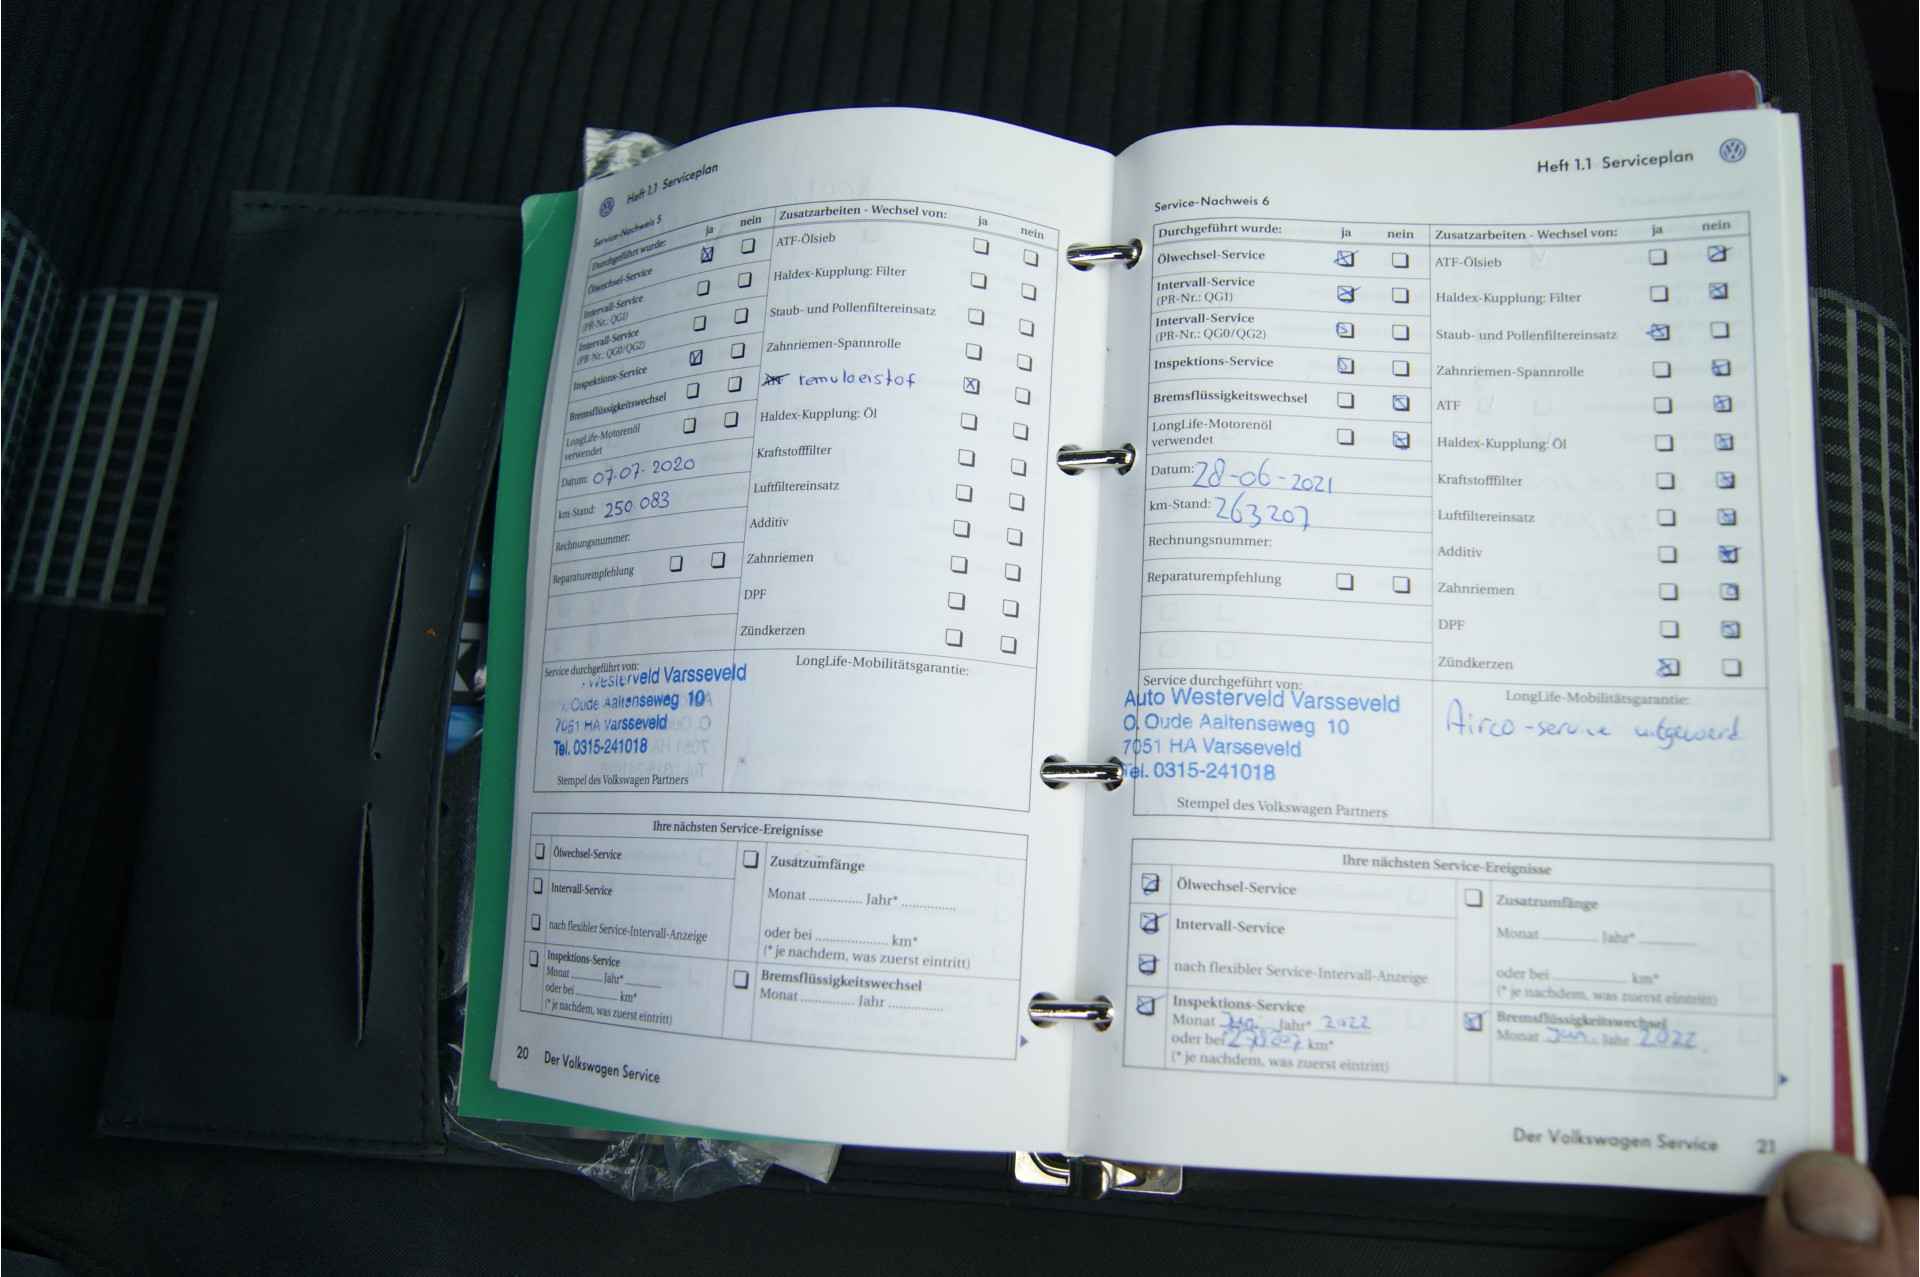 Heft 1.1 Serviceplan
Service-Nachweis 5
Durchgeführt wurde: ja nein
Ölwechsel-Service
Intervall-Service
(PR-Nr.: QG1)
Intervall-Service
(PR-Nr.: QG0/QG2)
Inspektions-Service
Bremsflüssigkeitswechsel
LongLife-Motorenöl
verwendet
Datum: 07-07-2020
km-Stand: 250 083
Rechnungsnummer:
Reparaturempfehlung
Zusatzarbeiten - Wechsel von: ja nein
ATF-Ölsieb
Haldex-Kupplung: Filter
Staub- und Pollenfiltereinsatz
Zahnriemen-Spannrolle
remvloeistof
Haldex-Kupplung: Öl
Kraftstofffilter
Luftfiltereinsatz
Additiv
Zahnriemen
DPF
Zündkerzen
Service durchgeführt von:
Westerveld Varsseveld
Oude Aaltenseweg 10
7051 HA Varsseveld
Tel. 0315-241018
Stempel des Volkswagen Partners
LongLife-Mobilitätsgarantie:
Ihre nächsten Service-Ereignisse
Ölwechsel-Service
Intervall-Service
nach flexibler Service-Intervall-Anzeige
Inspektions-Service
Monat ......... Jahr* .........
oder bei ............ km*
(* je nachdem, was zuerst eintritt)
Zusatzumfänge
Monat .............. Jahr* ..............
oder bei ................... km*
(* je nachdem, was zuerst eintritt)
Bremsflüssigkeitswechsel
Monat .............. Jahr ..............
20 Der Volkswagen Service
Heft 1.1 Serviceplan
Service-Nachweis 6
Durchgeführt wurde: ja nein
Ölwechsel-Service
Intervall-Service
(PR-Nr.: QG1)
Intervall-Service
(PR-Nr.: QG0/QG2)
Inspektions-Service
Bremsflüssigkeitswechsel
LongLife-Motorenöl
verwendet
Datum: 28-06-2021
km-Stand: 263207
Rechnungsnummer:
Reparaturempfehlung
Zusatzarbeiten - Wechsel von: ja nein
ATF-Ölsieb
Haldex-Kupplung: Filter
Staub- und Pollenfiltereinsatz
Zahnriemen-Spannrolle
ATF
Haldex-Kupplung: Öl
Kraftstofffilter
Luftfiltereinsatz
Additiv
Zahnriemen
DPF
Zündkerzen
Service durchgeführt von:
Auto Westerveld Varsseveld
O. Oude Aaltenseweg 10
7051 HA Varsseveld
Tel. 0315-241018
Stempel des Volkswagen Partners
LongLife-Mobilitätsgarantie:
Airco-service uitgevoerd
Ihre nächsten Service-Ereignisse
Ölwechsel-Service
Intervall-Service
nach flexibler Service-Intervall-Anzeige
Inspektions-Service
Monat Jun. Jahr* 2022
oder bei km*
(* je nachdem, was zuerst eintritt)
Zusatzumfänge
Monat ............ Jahr* ............
oder bei ................ km*
(* je nachdem, was zuerst eintritt)
Bremsflüssigkeitswechsel
Monat Jun. Jahr 2022
Der Volkswagen Service 21